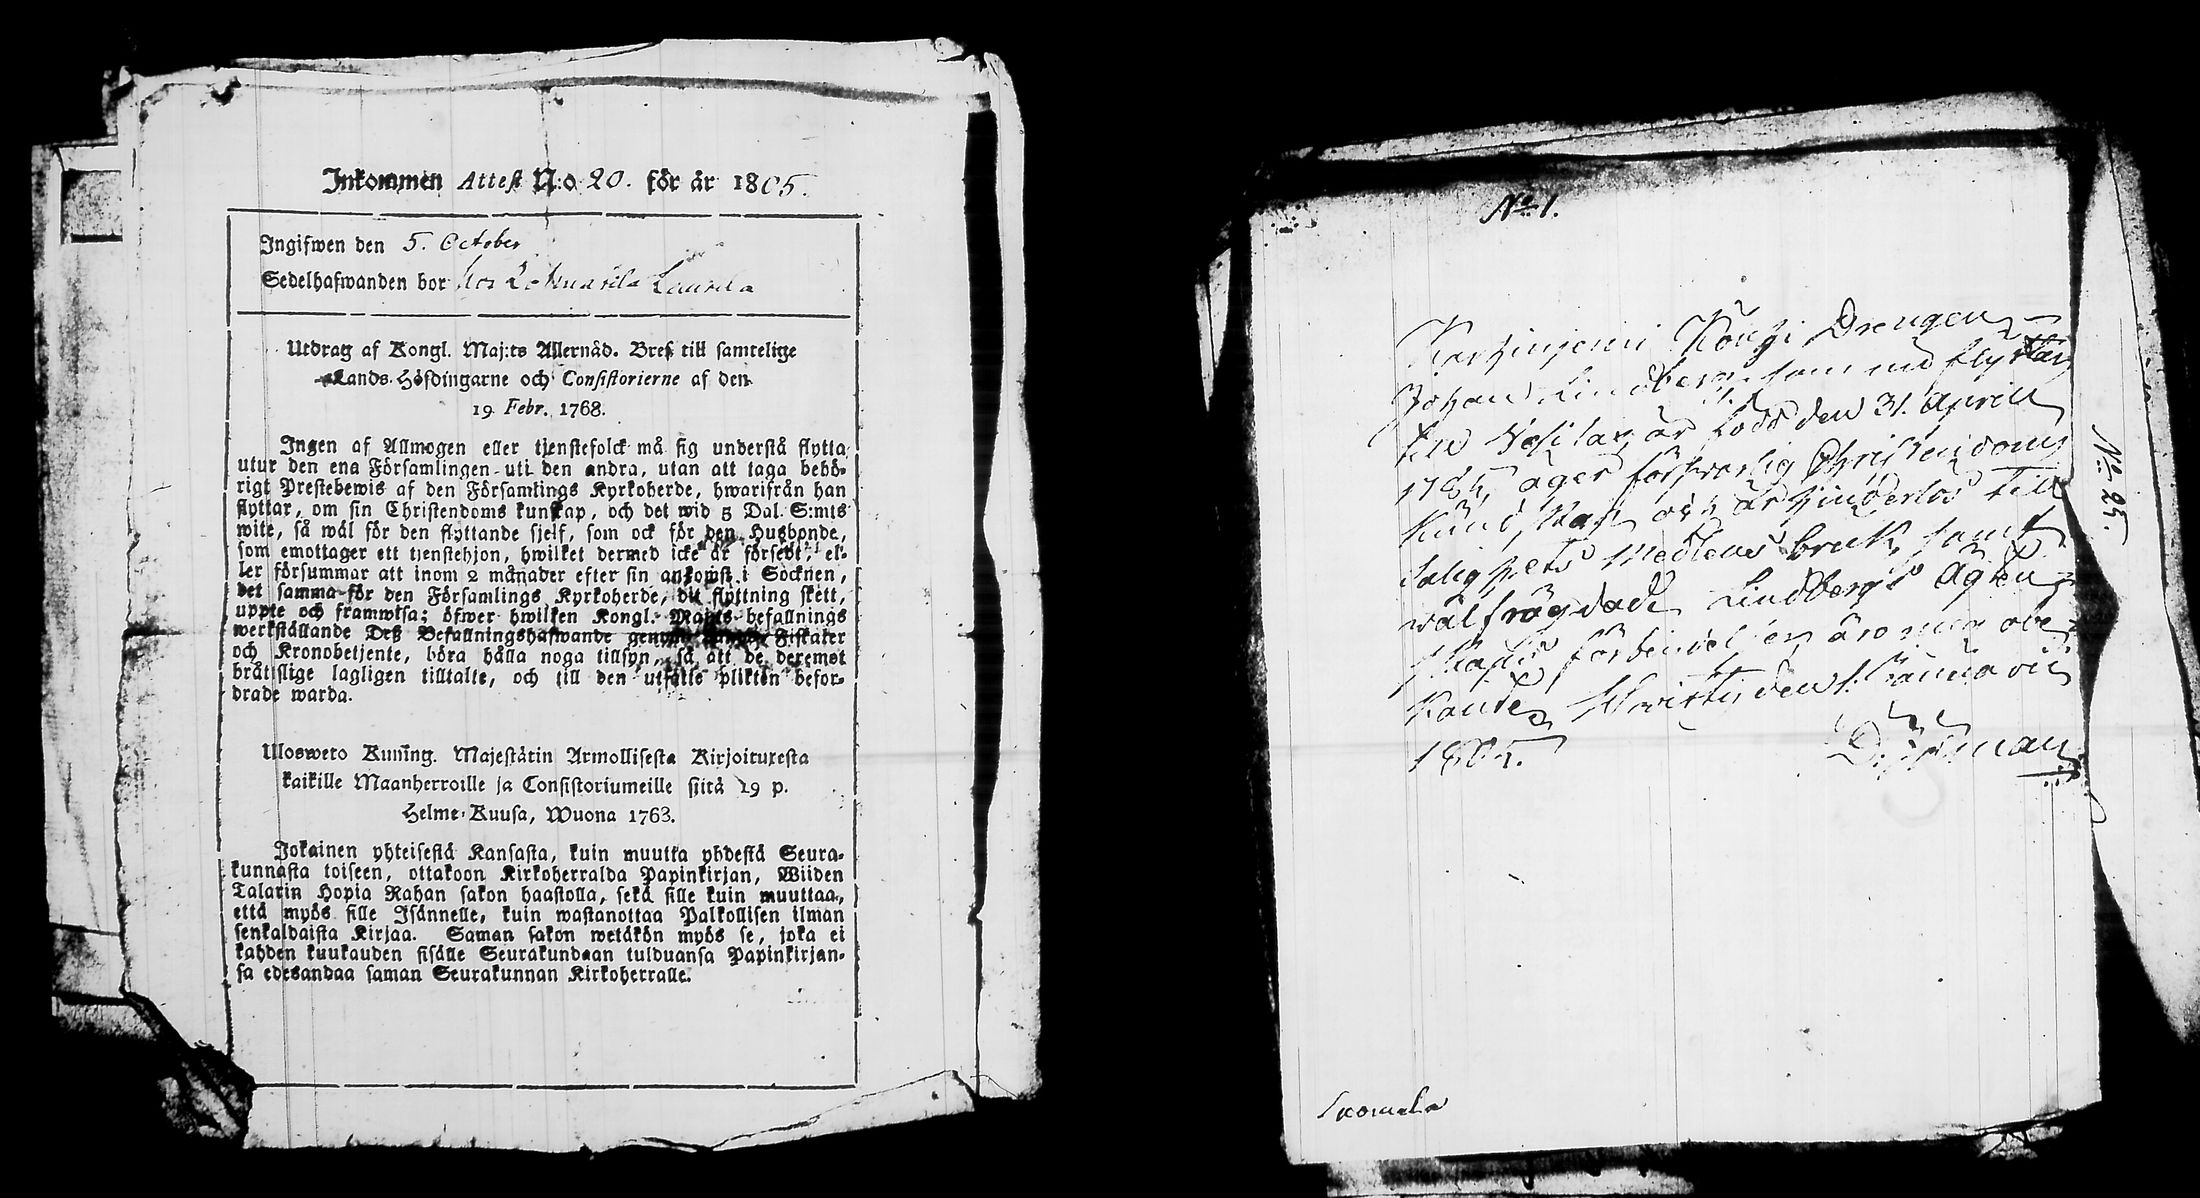 Inkommen Attest N:o 20. för år 1805.
Ingifwen den 5. October
Sedelhafwanden bor hos Laurila
Utdrag af Kongl. Maj:ts Allernåd. Bref till samtelige
Lands-Höfdingarne och Consistorierne af den
19 Febr. 1768.
Ingen af Allmogen eller tjenstefolck må sig understå flytta
utur den ena Församlingen uti den andra, utan att taga behö-
rigt Prestebewis af den Församlings Kyrkoherde, hwarifrån han
flyttar, om sin Christendoms kunskap, och det wid 5 Dal. S:mts
wite, så wäl för den flyttande sjelf, som ock för den Husbonde,
som emottager ett tjenstehjon, hwilket dermed icke är försedt, el-
ler försummar att inom 2 månader efter sin ankomst i Socknen,
det samma för den Församlings Kyrkoherde, dit flyttning skett,
uppte och framwisa; öfwer hwilken Kongl. Maj:ts befallnings
werkställande Deß Befallningshafwande genom Fiskaler
och Kronobetjente, böra hålla noga tillsyn, så att de deremot
bråtslige lagligen tilltalte, och till den utsatte plikten befor-
drade warda.
Ulosweto Kuning. Majestätin Armollisesta Kirjoituresta
kaikille Maanherroille ja Consistoriumeille siitä 19 p.
Helme-Kuusa, Wuona 1763.
Jokainen yhteisestä Kansasta, kuin muutta yhdestä Seura-
kunnasta toiseen, ottakoon Kirkoherralda Papinkirjan, Wiiden
Talarin Hopia Rahan sakon haastolla, sekä sille kuin muuttaa,
että myös sille Isännelle, kuin wastanottaa Palkollisen ilman
senkaldaista Kirjaa. Saman sakon wetäkön myös se, joka ei
kahden kuukauden sisälle Seurakundaan tulduansa Papinkirjan-
sa edesandaa saman Seurakunnan Kirkoherralle.
No 1.
Drengen
Johan Lindberg, som nu flyttar
till är född den 31. Aprill
178 äger försvarlig Christendoms
Kundskap och är hinderlös till
Salighets Medlens bruk, samt
wälfrägdad. Lindbergs Ägten-
skaps förbindelser äro mig obe-
kante. den 1. Januarii
1805.
No 25.
Suomela